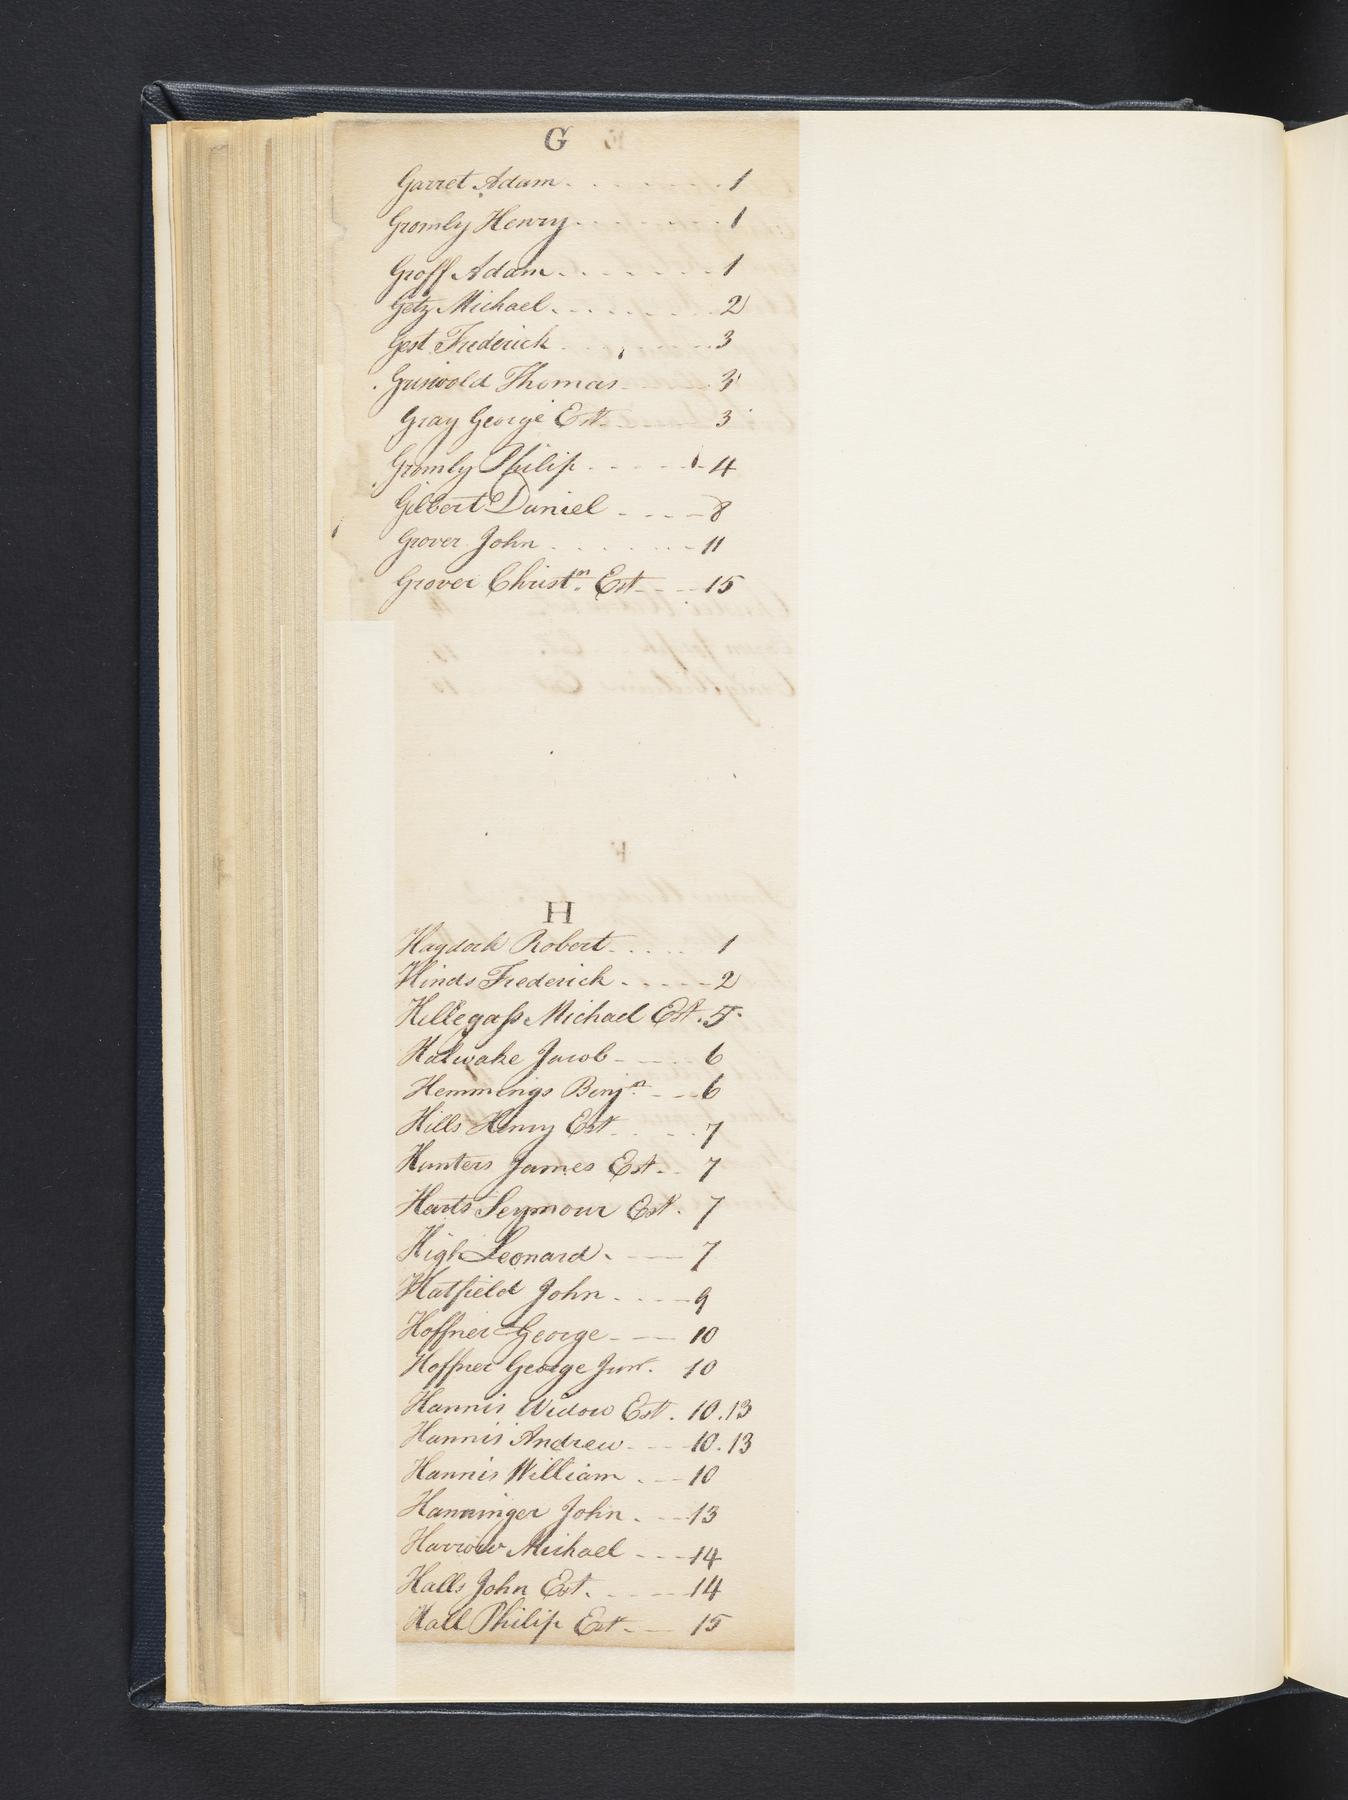 G
Garret Adam. . . . . . . 1
Gromly Henry. . . . . . 1
Groff Adam. . . . . . . 1
Getz Michael. . . . . . . 2
Gest Frederick . . . . . 3
Griswold Thomas 3
Gray George Est. 3
Gromly Philip. - - - - - 4
Gilbert Daniel - - - - 8
Grover John . . . . . . - 11
Grover Christn. Est - - - 15
H
Haydock Robert. . . . . 1
Hinds Frederick . - - - - 2
Hillegass Michael Est. 5
Halwake Jacob - - - - 6
Hemmings Benjn. - - - 6
Hills Henry Est - - - 7
Hunters James Est. - 7
Harts Seymour Est. 7
High Leonard. - - - 7
Hatfield John . . . - - 9
Hoffner George - - - 10
Hoffner George Junr. 10
Hannis Widow Est. 10.13
Hannis Andrew - - - 10.13
Hannis William . - - 10
Hanninger John . - - 13
Michael - - - 14
Halls John Est. - - - 14
Hall Philip Est - - - 15